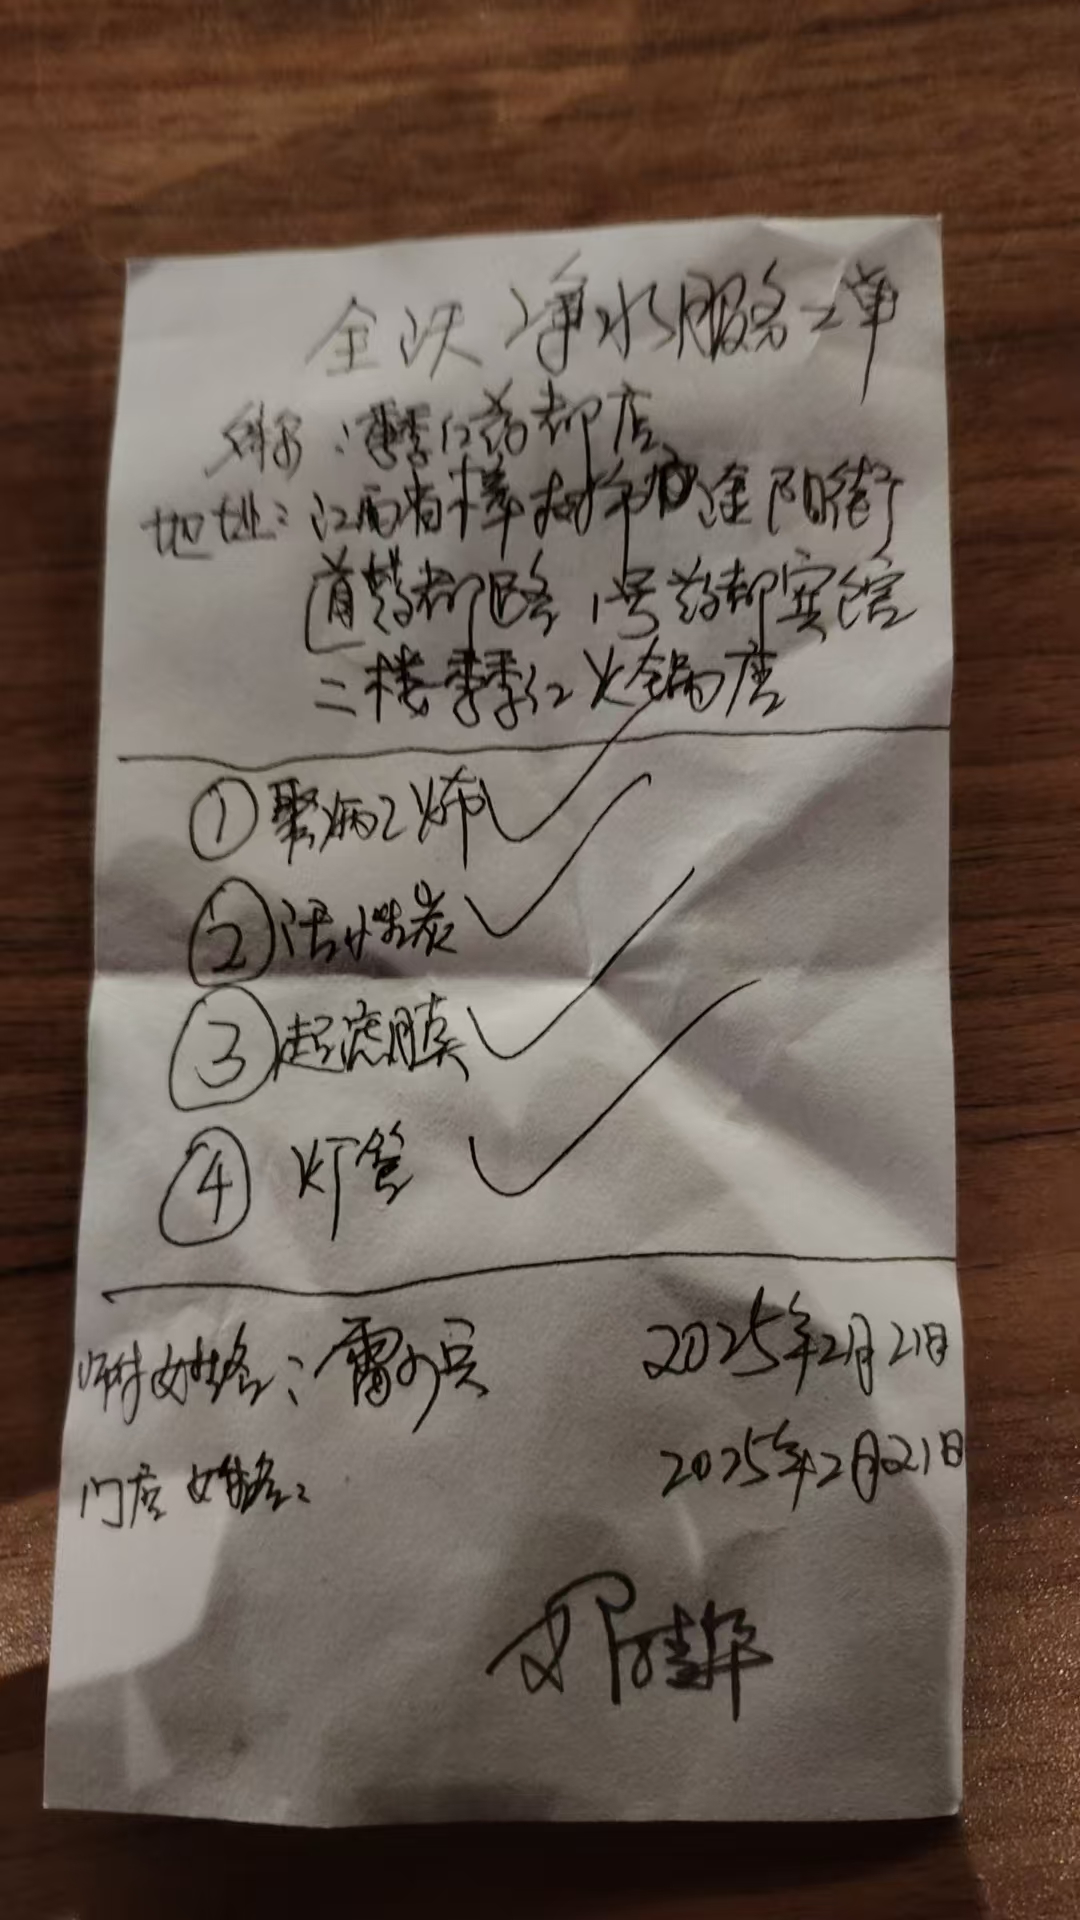 净水服务单
季季红药都店
地址：江西省樟树市淦阳街
道药都路1号药都宾馆
二楼季季红火锅店
①聚丙乙烯
②活性炭
③起滤膜
④灯管
师付姓名：雷小兵 2025年2月21日
门店姓名： 2025年2月21日